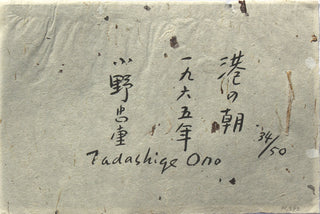 港の朝
34/50
一九六五年
小野忠重
Tadashige Ono